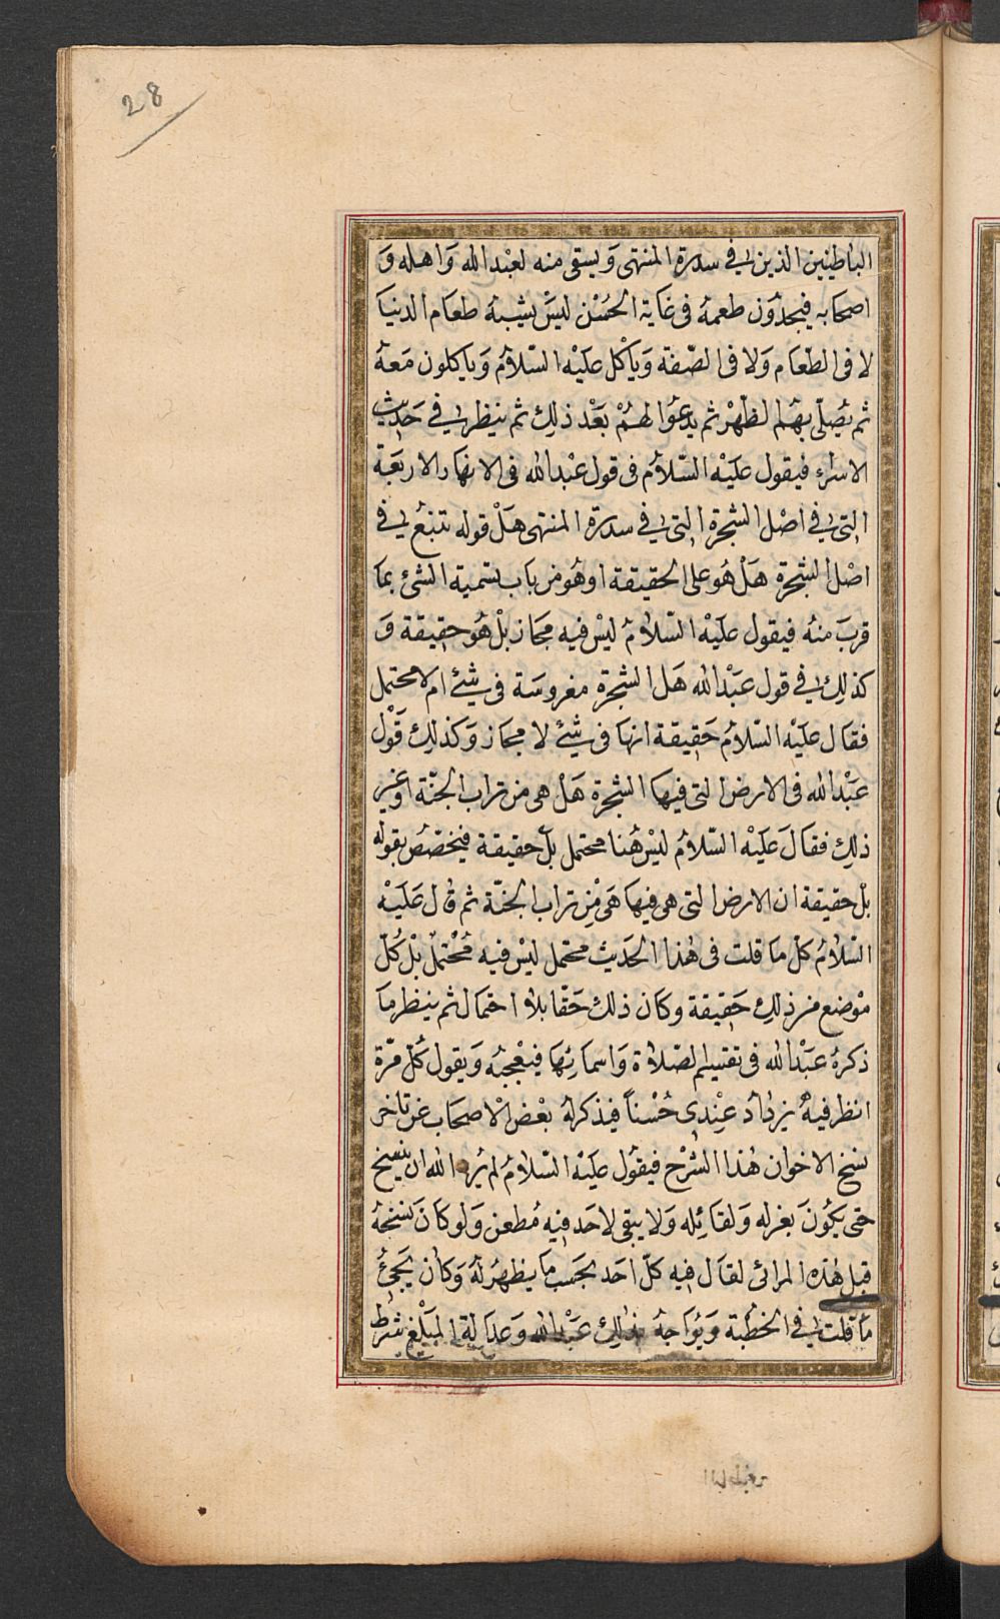 28
الباطنين الذين في سدرة المنتهى وَيسقى منه لعبْدالله وَاهله وَ
اصحَابه فيجدُون طعمهُ فى غَاية الحُسْن ليسَ يشبهُ طعَام الدنيَا
لا فى الطّعَام وَلا فى الصّفة وَيَأكل عليْه السّلاَمُ وَياكلون مَعهُ
ثم يُصَلّى بهَم الظهْر ثم يدعُوا لهُمْ بَعْد ذلِك ثم ينظر في حَديث
الاسرَاء فيقول عليْه السّلاَم فى قول عبْدالله فى الانهَار الاربَعَة
التى في اصْل الشجرَة التى في سدرة المنتهى هَلْ قوله تنبعُ في
اصْل الشجرَة هَل هُو على الحقيقة اوهُو من باب تسمية الشئ بمَا
قربَ منهُ فيقول عليْه السّلاَمُ ليسْ فيه مجَاز بلْ هُو حقيقة وَ
كذلِك في قول عَبْدالله هَل الشجرَة مغروسَة فى شئ ام لا محتمل
فقَال عليْه السّلاَمُ حَقيقة انهَا فى شئ لا مجَاز وَكذلِك قَوْل
عَبْدالله فى الارض التى فيهَا الشجرَة هَلْ هى من تراب الجنّة اوغير
ذلِك فقَالَ عَليْه السّلاَمُ ليسْ هُنا محتمل بلْ حقيقة فيخصّصُ بقوله
بلْ حقيقة ان الارض التى هى فيهَا هَى مِن تراب الجنّة ثم قال عَليْه
السّلاَمُ كلّ مَا قلت فى هٰذا الحَديث محتمل ليسْ فيه مُحْتملٌ بلْ كُلّ
موْضع من ذلِك حَقيقة وكان ذلك حَقّا بلا احتمَال ثم ينظر مَا
ذكرهُ عَبْدالله فى تقسيم الصّلاة وَاسمَائِهَا فيعْجبهُ وَيقول كُلّ مرّة
انظر فيهُ يزدَاد عِنْدى حُسْناً فيذكرلهُ بعْض الاصحَاب عن تاخر
نسخ الاخوان هٰذا الشرْح فيقُول عليْه السّلاَمُ لم يُرد الله ان ينسخ
حتى يكوُنَ بعزله وَلقَائِله وَلا يبقى لاحَد فيه مُطعن وَلوكانَ نسْخهُ
قبل هٰذه المرائى لقَال فيه كلّ احَد بحَسب مَا يظهرُ لهُ وَكان يجَئُ
مَا قلت في الخطْبة وَيُوَاجهُ بذلِك عَبْدالله وَعدَالة المبَلّغ شرط